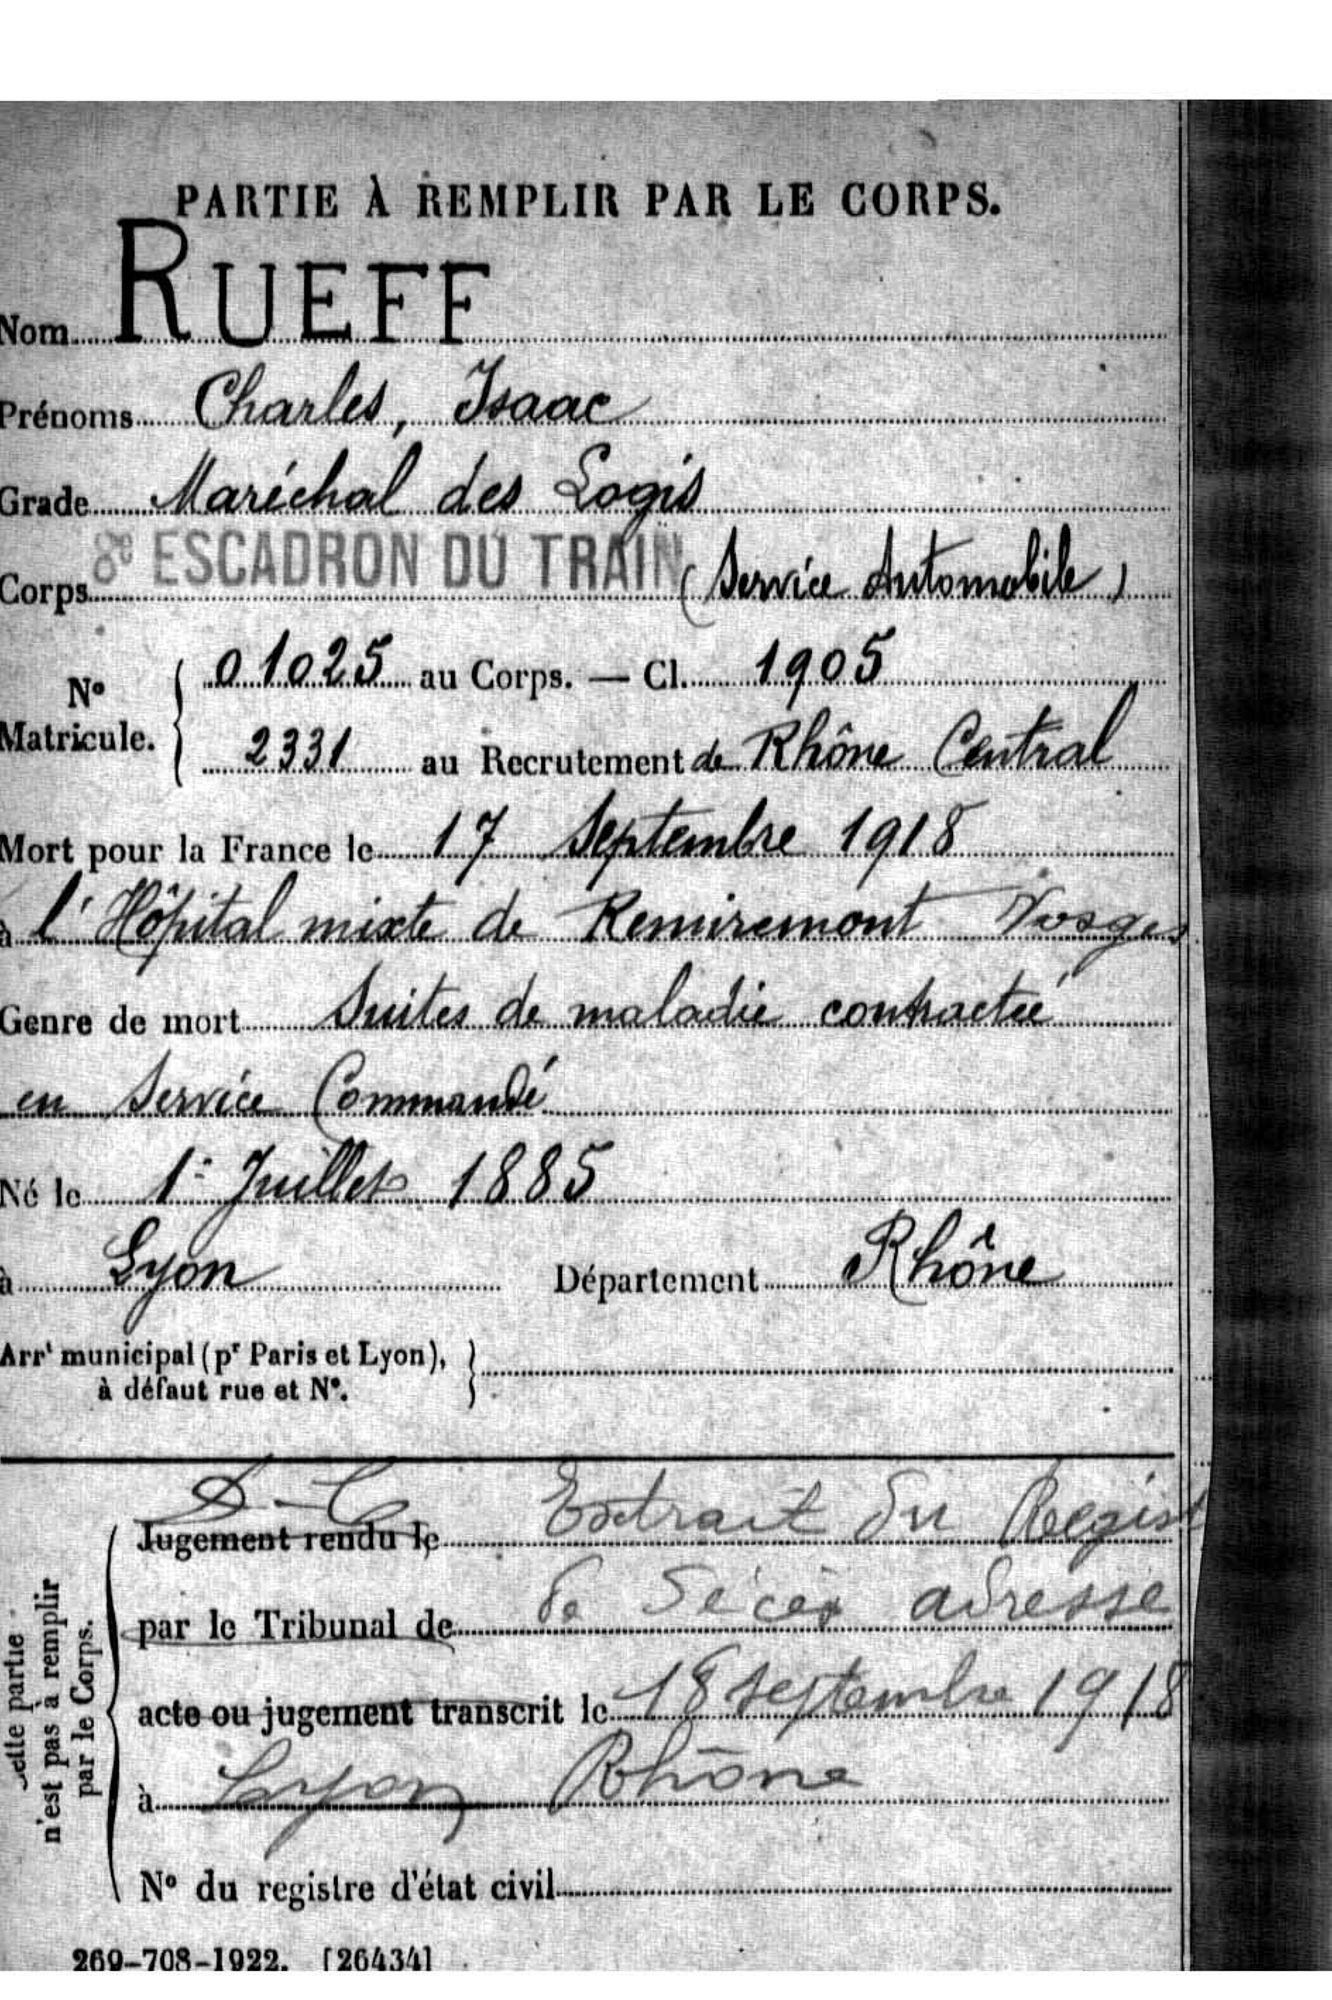 PARTIE À REMPLIR PAR LE CORPS.
Nom RUEFF
Prénoms Charles, Isaac
Grade Maréchal des Logis
Corps 8e ESCADRON DU TRAIN (Service Automobile)
No Matricule. { 01025 au Corps. — Cl. 1905
2331 au Recrutement de Rhône Central
Mort pour la France le 17 Septembre 1918
à l'Hôpital mixte de Remiremont Vosges
Genre de mort Suites de maladie contractée
en Service Commandé
Né le 1er Juillet 1885
à Lyon Département Rhône
Arrt municipal (pr Paris et Lyon), }
à défaut rue et No.
D-C
Jugement rendu le Extrait du Regist
par le Tribunal de de décès adressé
acte ou jugement transcrit le 18 septembre 1918
à Lyon Rhône
No du registre d'état civil
Cette partie n'est pas à remplir par le Corps.
269-708-1922. [26434]